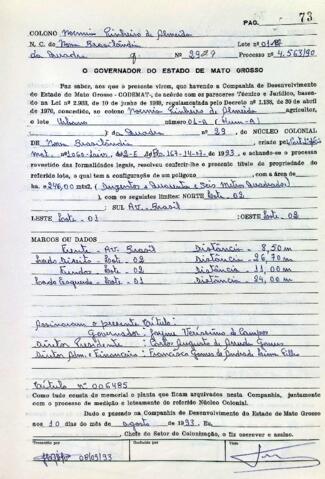 PAG. 73
COLONO Nermio Pinheiro de Almeida
N. C. de Nova Brasilândia Lote nº 01-A
da Quadra Nº 29 Processo nº 4.563/90
O GOVERNADOR DO ESTADO DE MATO GROSSO
Faz saber aos que a presente virem, que havendo a Companhia de Desenvolvimento
do Estado de Mato Grosso - CODEMAT-, de acôrdo com os pareceres Técnico e Jurídico, basea-
do na Lei nº 2.933, de 10 de junho de 1969, regulamentada pelo Decreto nº 1.138, de 30 de abril
de 1970, concedido, ao colono Nermio Pinheiro de Almeida agricultor,
o lote Urbano número 01-A (Hum-A)
da Quadra nº 29, do NÚCLEO COLONIAL
DE Nova Brasilândia criado pel
mat. nº 1060 1993, e achando-se o processo
revestido das formalidades legais, resolveu conferir-lhe o presente título de propriedade
do referido lote, o qual tem a configuração de um polígono com a área de
ha. 246,00 mts2 (Duzentos e Quarenta e Seis Metros Quadrados)
, com os seguintes limites: NORTE Lote - 02
; SUL Av. Brasil
LESTE Lote - 01 ; OESTE Lote - 02
MARCOS OU DADOS
Frente - Av. Brasil Distância - 8,50 m
Lado Direito - Lote - 02 Distância - 26,70 m
Fundos - Lote - 02 Distância - 11,00 m
Lado Esquerdo - Lote - 01 Distância - 24,00 m
Assinaram o presente título:
Governador: Jayme Veríssimo de Campos
Diretor Presidente: Carlos Augusto de Arruda Gomes
Diretor Adm. e Financeiro: Francisco Gomes de Andrade Lima Filho
Título nº 006485
Como tudo consta do memorial e planta que ficam arquivados nesta Companhia, juntamente
com o processo de medição e loteamento do referido Núcleo Colonial.
Dado o presente na Companhia de Desenvolvimento do Estado de Mato Grosso
aos 10 dias do mês de agosto de 1993. Eu
, Chefe do Setor de Colonização, o fiz escrever e assino.
Transcrito por Visto
08/09/93